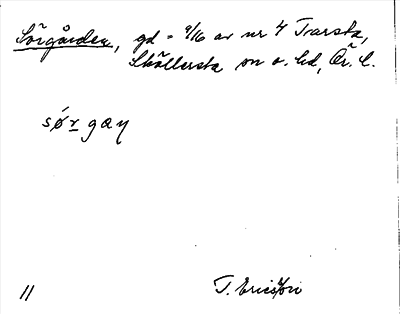 Sörgården, gd = 9/16 av nr 4 Trarsta,
Sköllersta sn o. hd, Ör. l.
sǿr gaɳ
11 T. Ericsson